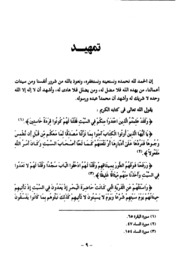 تمهيد
إن الحمد لله نحمده ونستعينه ونستغفره، ونعوذ بالله من شرور أنفسنا ومن سيئات
أعمالنا، من يهده الله فلا مضل له، ومن يضلل فلا هادي له، وأشهد أن لا إله إلا الله
وحده لا شريك له وأشهد أن محمداً عبده ورسوله.
يقول الله تعالى في كتابه الكريم:
﴿وَلَقَدْ عَلِمْتُمُ الَّذِينَ اعْتَدَوْا مِنْكُمْ فِي السَّبْتِ فَقُلْنَا لَهُمْ كُونُوا قِرَدَةً خَاسِئِينَ﴾(١).
﴿يَا أَيُّهَا الَّذِينَ أُوتُوا الْكِتَابَ آمِنُوا بِمَا نَزَّلْنَا مُصَدِّقًا لِمَا مَعَكُمْ مِنْ قَبْلِ أَنْ نَطْمِسَ
وُجُوهًا فَنَرُدَّهَا عَلَى أَدْبَارِهَا أَوْ نَلْعَنَهُمْ كَمَا لَعَنَّا أَصْحَابَ السَّبْتِ وَكَانَ أَمْرُ اللَّهِ
مَفْعُولًا﴾(٢).
﴿وَرَفَعْنَا فَوْقَهُمُ الطُّورَ بِمِيثَاقِهِمْ وَقُلْنَا لَهُمُ ادْخُلُوا الْبَابَ سُجَّدًا وَقُلْنَا لَهُمْ لَا تَعْدُوا
فِي السَّبْتِ وَأَخَذْنَا مِنْهُمْ مِيثَاقًا غَلِيظًا﴾(٣).
﴿وَاسْأَلْهُمْ عَنِ الْقَرْيَةِ الَّتِي كَانَتْ حَاضِرَةَ الْبَحْرِ إِذْ يَعْدُونَ فِي السَّبْتِ إِذْ تَأْتِيهِمْ
حِيتَانُهُمْ يَوْمَ سَبْتِهِمْ شُرَّعًا وَيَوْمَ لَا يَسْبِتُونَ لَا تَأْتِيهِمْ كَذَلِكَ نَبْلُوهُمْ بِمَا كَانُوا يَفْسُقُونَ
(١) سورة البقرة ٦٥.
(٢) سورة النساء ٤٧.
(٣) سورة النساء ١٥٤.
- ٩ -